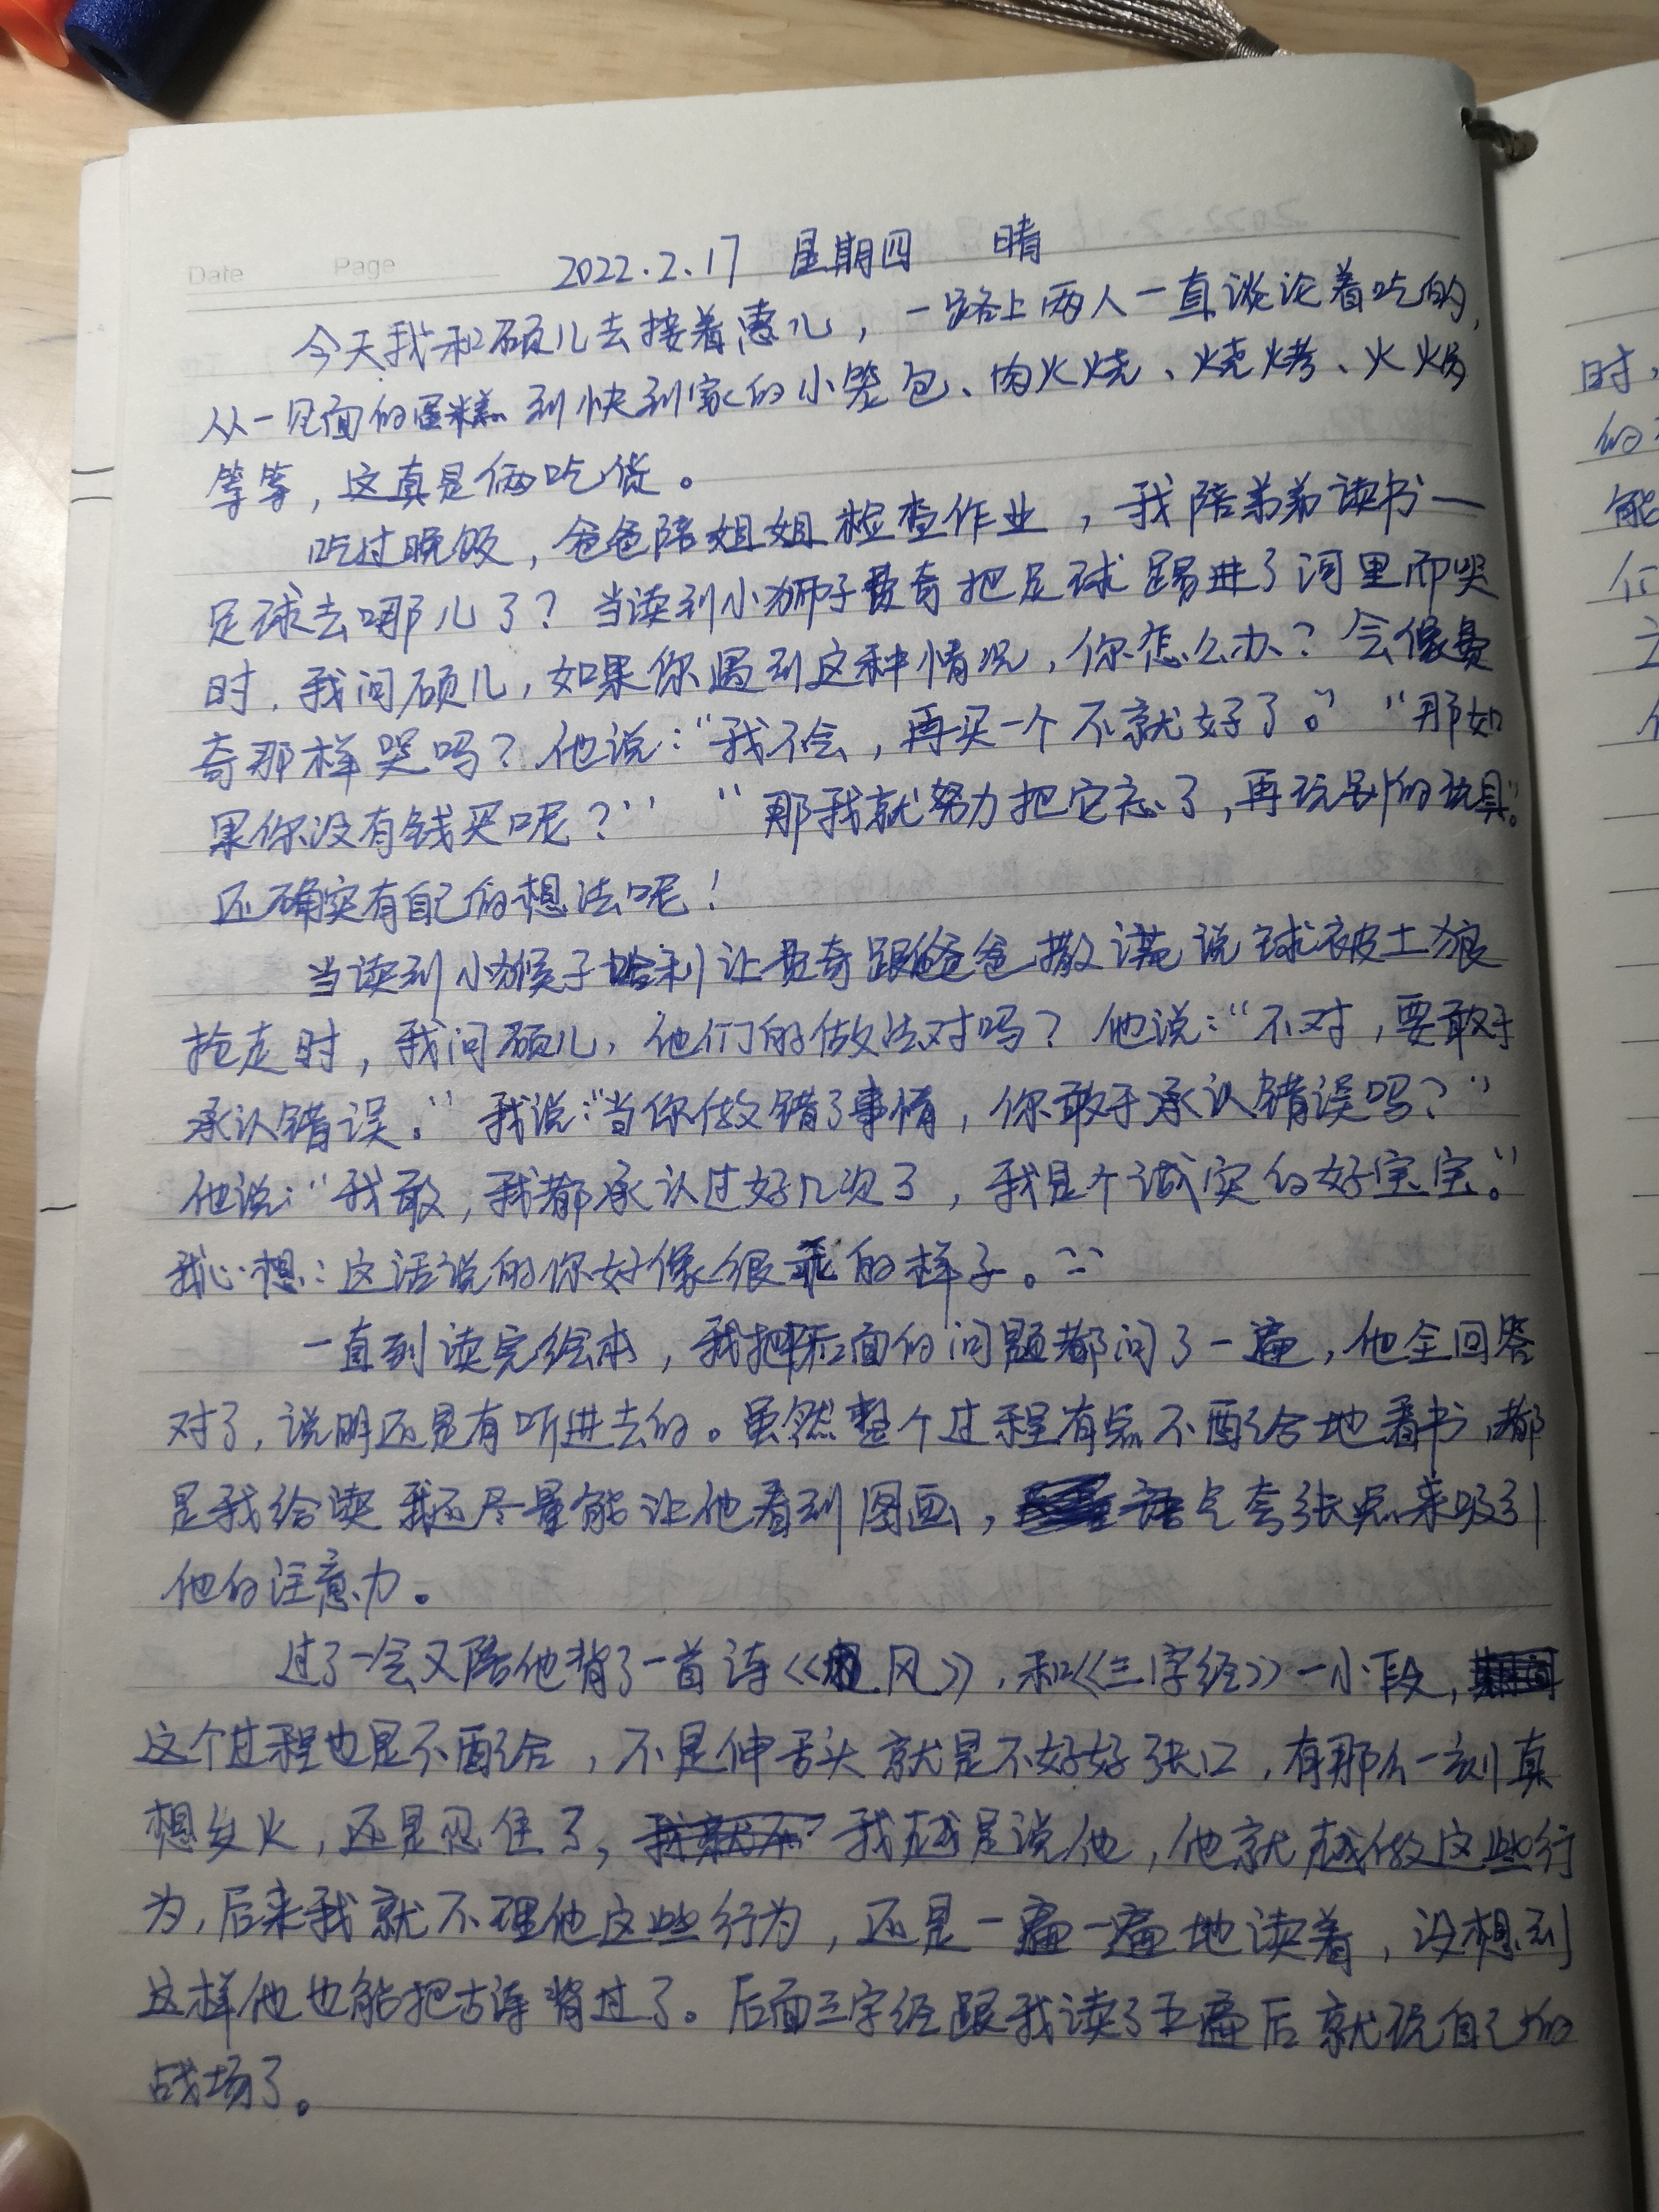 Date Page 2022.2.17 星期四 晴
今天我和硕儿去接着惠儿，一路上两人一直谈论着吃的，
从一见面的蛋糕到快到家的小笼包、肉火烧、烧烤、火锅
等等，这真是俩吃货。
吃过晚饭，爸爸陪姐姐检查作业，我陪弟弟读书—
足球去哪儿了？当读到小狮子费奇把足球踢进了河里而哭
时，我问硕儿，如果你遇到这种情况，你怎么办？会像费
奇那样哭吗？他说：“我不会，再买一个不就好了。”“那如
果你没有钱买呢？”“那我就努力把它忘了，再玩别的玩具。”
还确实有自己的想法呢！
当读到小猴子哈利让费奇跟爸爸撒谎说球被土狼
抢走时，我问硕儿，他们的做法对吗？他说：“不对，要敢于
承认错误。”我说：“当你做错了事情，你敢于承认错误吗？”
他说：“我敢，我都承认过好几次了，我是个诚实的好宝宝。”
我心想：这话说的你好像很乖的样子。
一直到读完绘本，我把后面的问题都问了一遍，他全回答
对了，说明还是有听进去的。虽然整个过程有点不配合地看书，都
是我给读我还尽量能让他看到图画，语气夸张点来吸引
他的注意力。
过了一会又陪他背了一首诗《风》，和《三字经》一小段，
这个过程也是不配合，不是伸舌头就是不好好张口，有那么一刻真
想发火，还是忍住了，我越是说他，他就越做这些行
为，后来我就不理他这些行为，还是一遍一遍地读着，没想到
这样他也能把古诗背过了。后面三字经跟我读了五遍后就说自己的
战场了。
时，
的
能